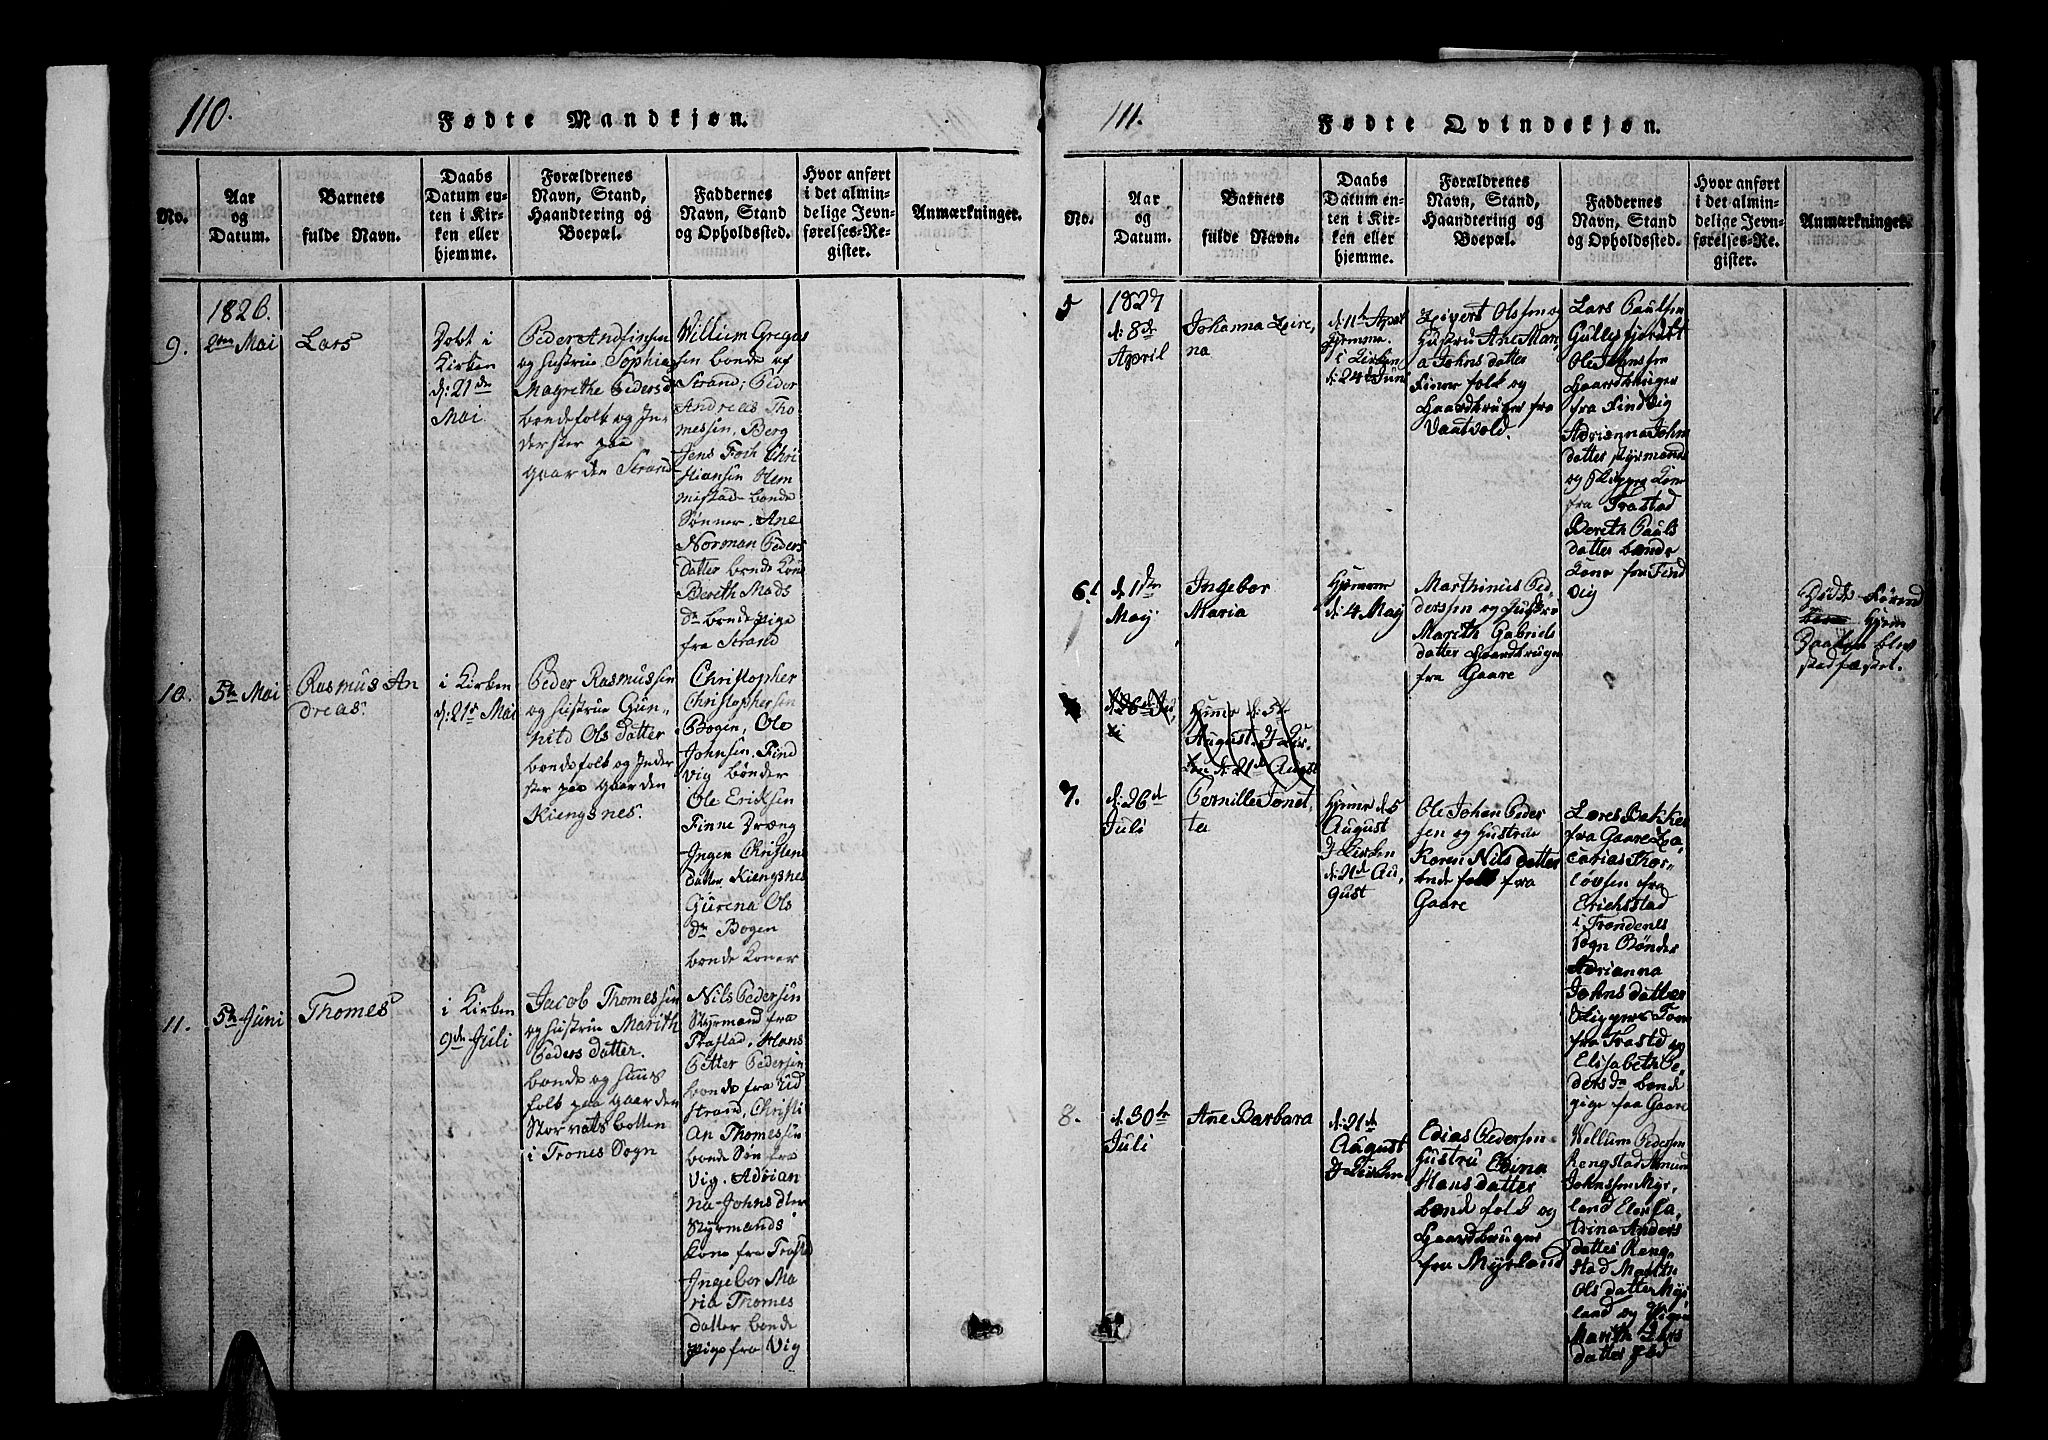 110.
Fødte Mandkjøn.
No.
Aar
og
Datum.
Barnets
fulde Navn.
Daabs
Datum en-
ten i Kir-
ken eller
hjemme.
Forældrenes
Navn, Stand,
Haandtering og
Boepæl.
Faddernes
Navn, Stand
og Opholdssted.
Hvor anført
i det almin-
delige Jevn-
førelses-Re-
gister.
Anmærkninger.
1826.
9.
2den Mai
Lars
Døbt i
Kirken
d: 21de
Mai
Peder Andfinsen
og Hustrue Sophia
Magrethe Pedersd
bondefolk og In-
derster paa
Gaarden Strand
Willum Gregus
sen bonde af
Strand, Peder
Andreas Tho
messen, Berg
Jens Foch Chri
stiansen Hem
mistad bonde
Sønner. Ane
Norman Peders
datter bonde Kone
Berith Mads
dr bonde pige
fra Strand
10.
5te Mai
Rasmus An
dreas
i Kirken
d: 21de Mai
Peder Rasmussen
og Hustrue Gun-
nild Ols datter
bondefolk og Inder
ster paa Gaarden
Kiengsnes.
Christopher
Christophersen
Bogen, Ole
Johnsen, Find
vig bønder
Ole Eriksen
Finne Dræng
Ingen Christens
datter Kiengsnes
Gurena Ols
dr Bogen
bonde Koner
11.
5te Juni
Thomes
i Kirken
9de Juli
Jacob Thomessen
og Hustrue Marith
Peders datter.
bonde og Huus
folk paa Gaarden
Stor vats botten
i Trones Sogn
Nils Pedersen
Styrmand fra
Trastad, Hans
Petter Pedersen
bonde fra Ud
strand, Christi
an Thomessen
bonde Søn fra
Vig. Adrian
na Johns dtter
Styrmands
Kone fra Trastad
Ingebor Ma
ria Thomes
datter bonde
Pige fra Vig
111.
Fødte Qvindekjøn.
No.
Aar
og
Datum.
Barnets
fulde Navn.
Daabs
Datum en-
ten i Kir-
ken eller
hjemme.
Forældrenes
Navn, Stand,
Haandtering og
Boepæl.
Faddernes
Navn, Stand
og Opholdssted.
Hvor anført
i det almin-
delige Jevn-
førelses-Re-
gister.
Anmærkninger.
5
1827
d: 8de
April
Johanna Leire,
na
d: 11te Aprl
Hjemme.
i Kirken
d: 24de Juni
Sivert Olssen og
Hustru Ane Mar,
a Johns datter
Finner folk og
Gaardbruger fra
Vaatvold.
Lars Paulsen
Gullesfjordet
Ole Johnsen
Gaardbruger
fra Findvig
Adrianna Johns
datter Styrmands
og Skippers Kone
fra Trastad
Berith Pauls
datter bonde
Kone fra Find
vig
6.
d. 1ste
May
Ingebor
Maria
Hjemme
d: 4 May
Marthinus Pe-
derssen og Hustrue
Marith Gabriels
datter Gaardbruger
fra Gaare
Døde Førend
Hjem
Daaben blev
stadfæstet.
d: 26de Ju,
li
Hjemme d: 5te
August. I Kir-
ken d: 21de August
7.
d: 26de
Juli
Pernille Jonet,
ta
Hjemme d: 5
August
I Kirken
d: 21de Au,
gust
Ole Johan Peder
sen og Hustrue
Karen Nils datter
bonde folk fra
Gaare
Lars Bakke
fra Gaare Za,
carias Thor
løvsen fra
Erichsstad
i Trondenes
Sogn Bønder
Adrianna
Johns datter
Skippers Kone
fra Trastd og
Elisabeth Pe-
ders dr bonde
pige fra Gaare
8.
d. 30te
Juli
Ane Barbara
d: 21de
August
I Kirken
Elias Pedersen
Hustru Elina
Hans datter
bonde folk og
Gaardbruger
fra Myrland
Vellum Pedersen
Rengstad Amund
Johnssen Myr,
land
datter Reng,
stad Marith
Ols datter Myr,
land og Pigen
Marith Lars
datter